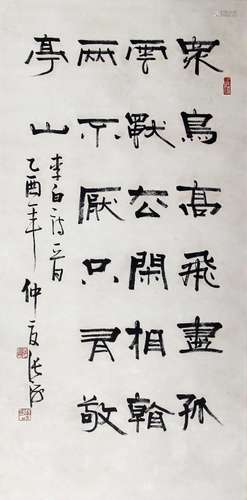 眾鳥高飛盡孤
雲獨去閑相看
兩不厭只有敬
亭山
李白詩一首
乙酉年仲夏